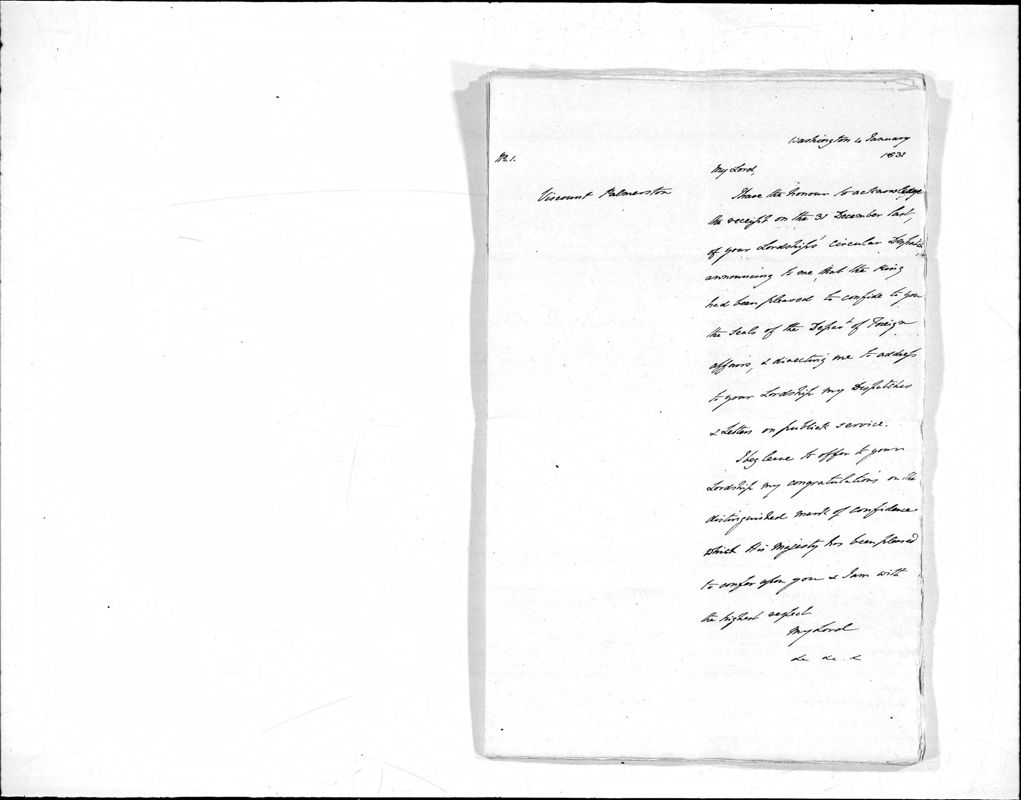 Washington 4 January
1831
No 1.
My Lord,
Viscount Palmerston
I have the honour to acknowledge
the receipt on the 31 December last,
of your Lordship's circular Despatch
announcing to me, that the King
had been pleased to confide to you
the Seals of the Depart. of Foreign
affairs, & directing me to address
to your Lordship my Despatches
& Letters on publick service.
I beg leave to offer to your
Lordship my congratulations on the
distinguished mark of confidence
which His Majesty has been pleased
to confer upon you & I am with
the highest respect
My Lord
&c &c. &